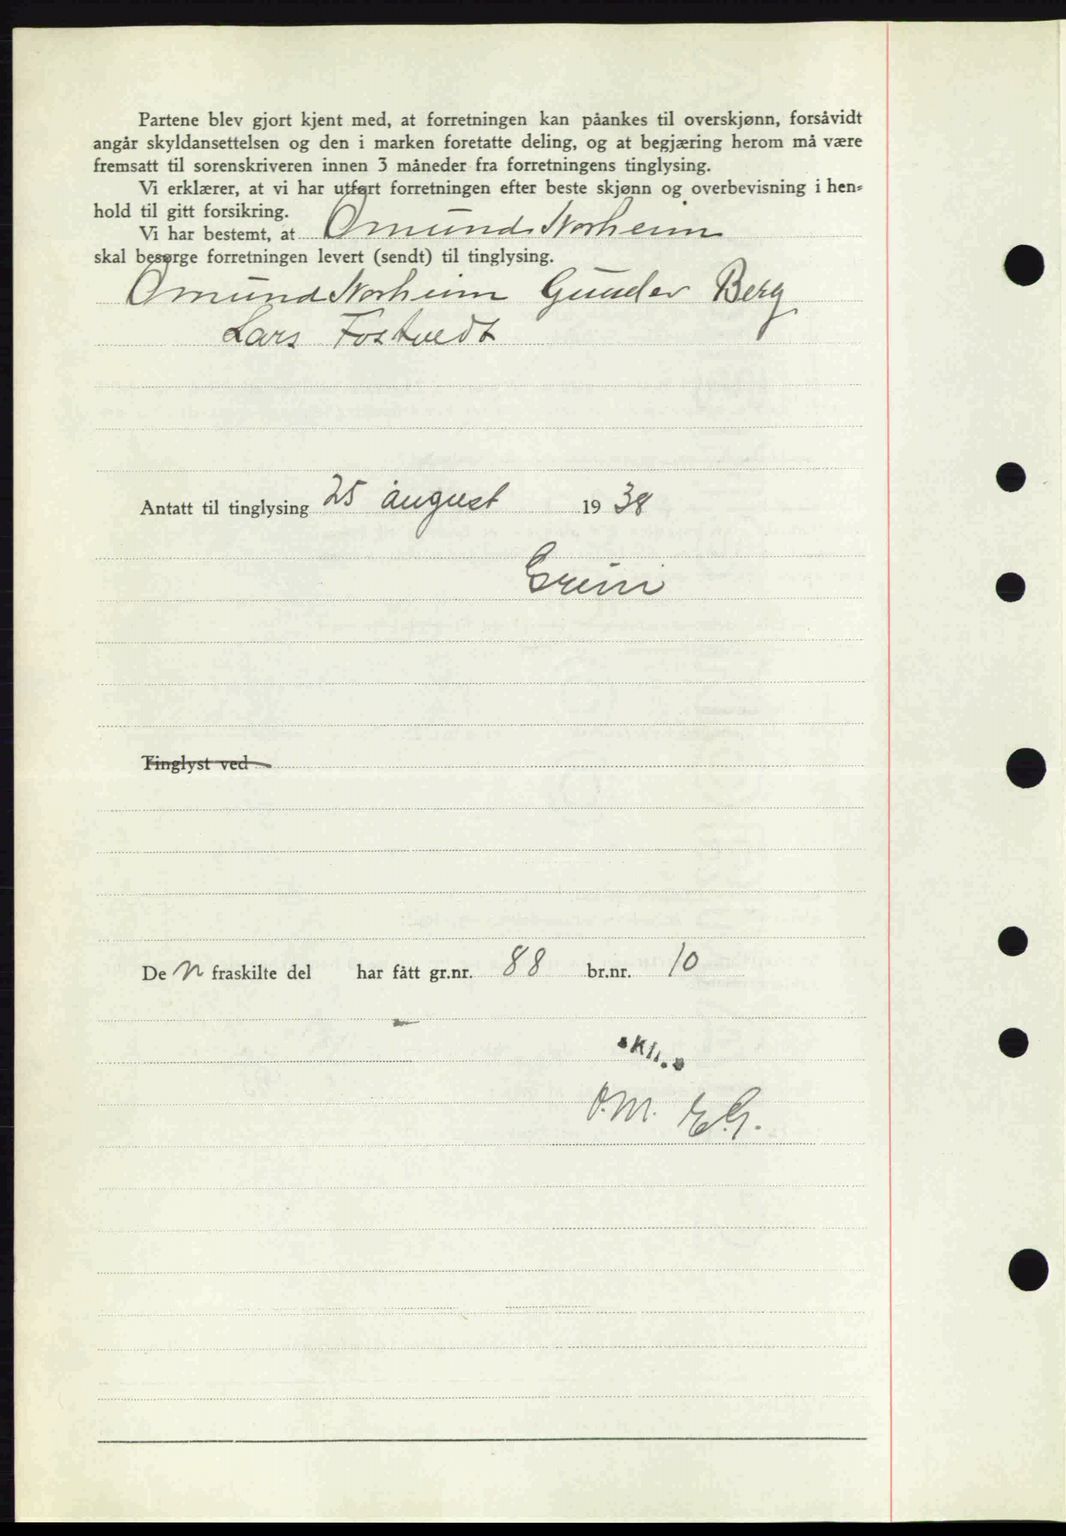 Partene blev gjort kjent med, at forretningen kan påankes til overskjønn, forsåvidt
angår skyldansettelsen og den i marken foretatte deling, og at begjæring herom må være
fremsatt til sorenskriveren innen 3 måneder fra forretningens tinglysing.
Vi erklærer, at vi har utført forretningen efter beste skjønn og overbevisning i hen-
hold til gitt forsikring.
Vi har bestemt, at Omund Norheim
skal besørge forretningen levert (sendt) til tinglysing.
Omund Norheim Gunder Berg
Lars Fostvedt
Antatt til tinglysing 25 august 1938
Greini
Tinglyst ved
De n fraskilte del har fått gr.nr. 88 br.nr. 10
O.M. E.G.